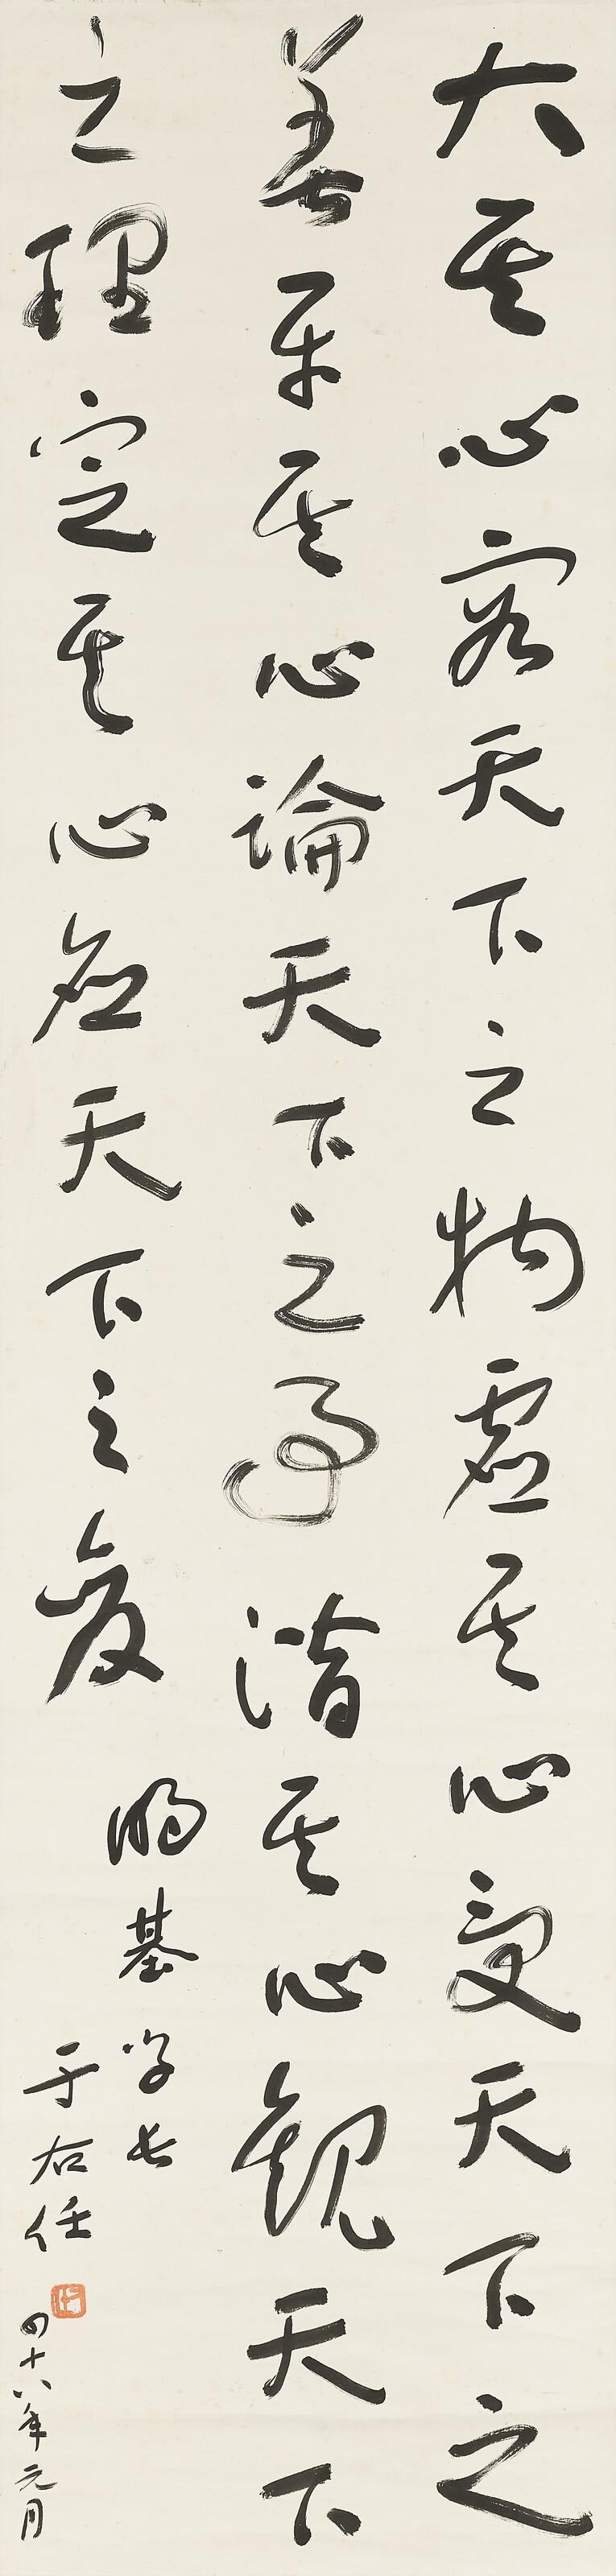 大其心容天下之物虛其心受天下之
善平其心論天下之事潛其心觀天下
之理定其心應天下之變
明基學長
于右任
四十八年元月